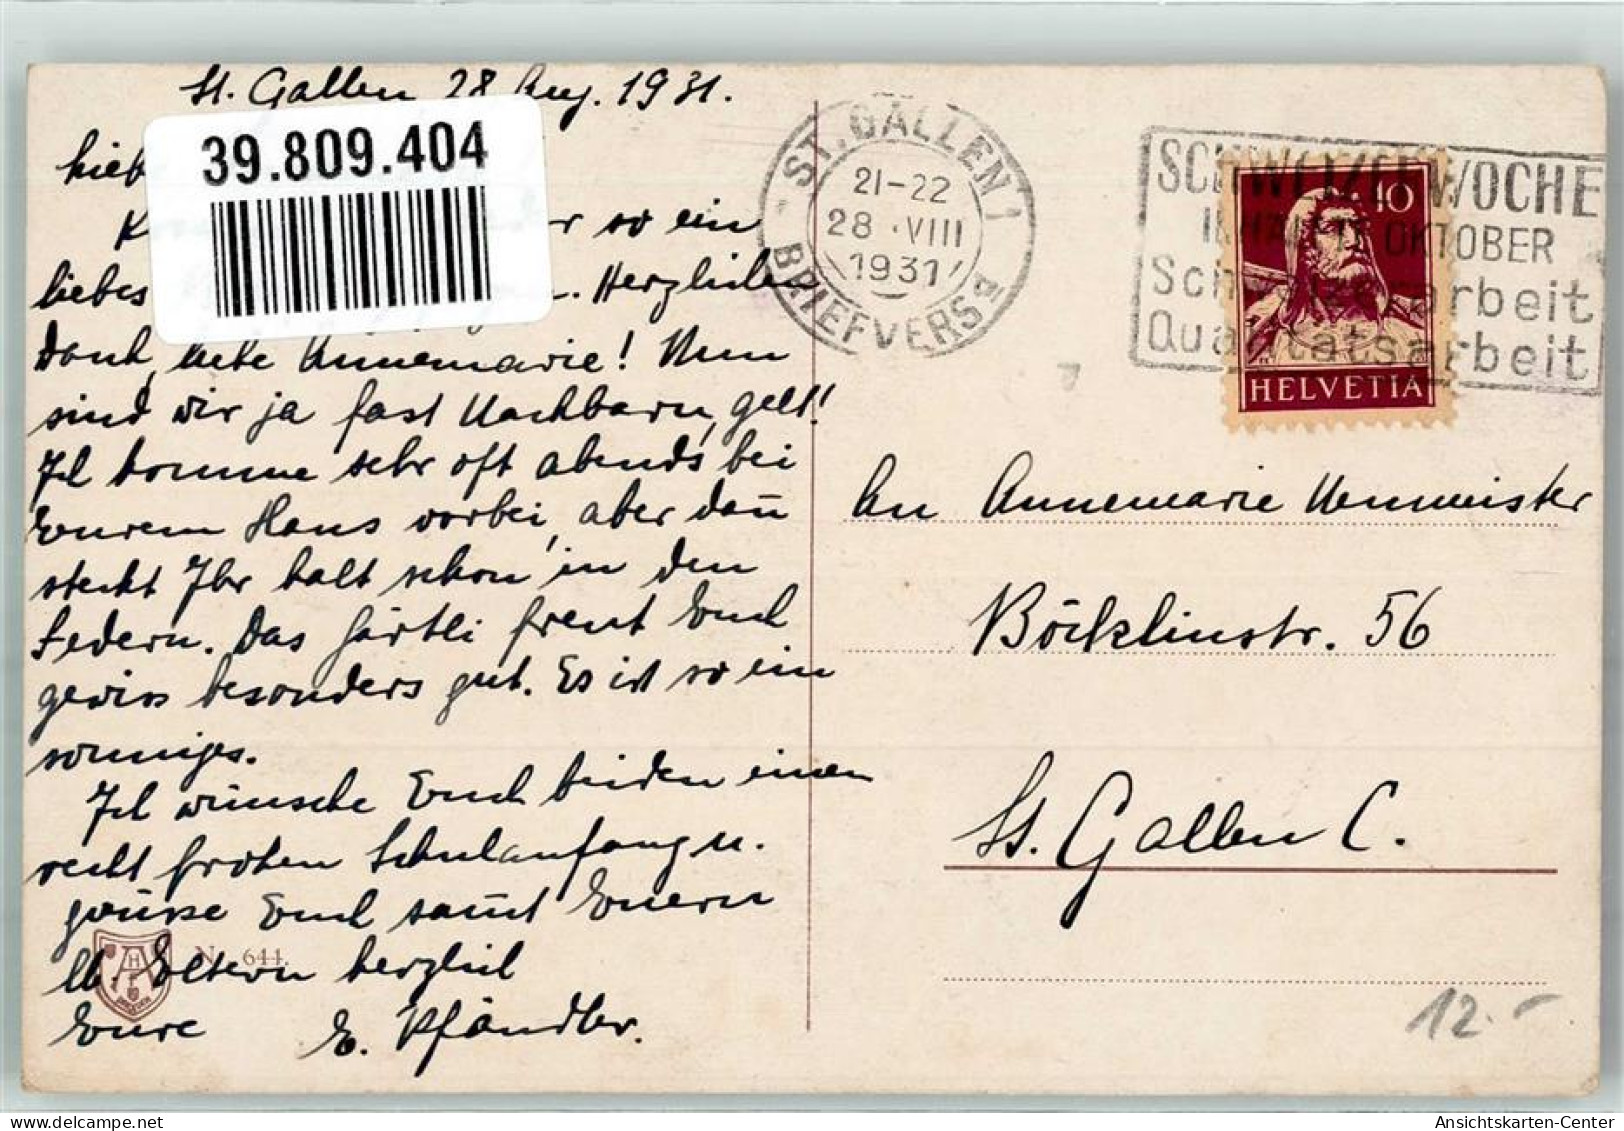 St. Gallen 28 Aug. 1931.
39.809.404
so ein
liebes . Herzlichen
Dank, liebe Annemarie! Nun
sind wir ja fast Nachbarn, gelt!
Ich komme sehr oft abends bei
Eurem Haus vorbei, aber dan̄
steckt Ihr halt schon in den
Federn. Das Gärtli freut Euch
gewiss besonders gut. Es ist so ein
sonniges.
Ich wünsche Euch beiden einen
recht frohen Schulanfang u.
grüsse Euch sam̄t Euern
lb. Eltern herzlich
Eure E. Pfändler.
HA
DRESDEN
No. 644.
ST. GALLEN 1
21-22
28.VIII
1931
BRIEFVERS
SCHWEIZERWOCHE
OKTOBER
Schweizerarbeit
Qualitätsarbeit
10
HELVETIA
An Annemarie
Böcklinstr. 56
St. Gallen C.
12.-
AnsichtsKarten-Center